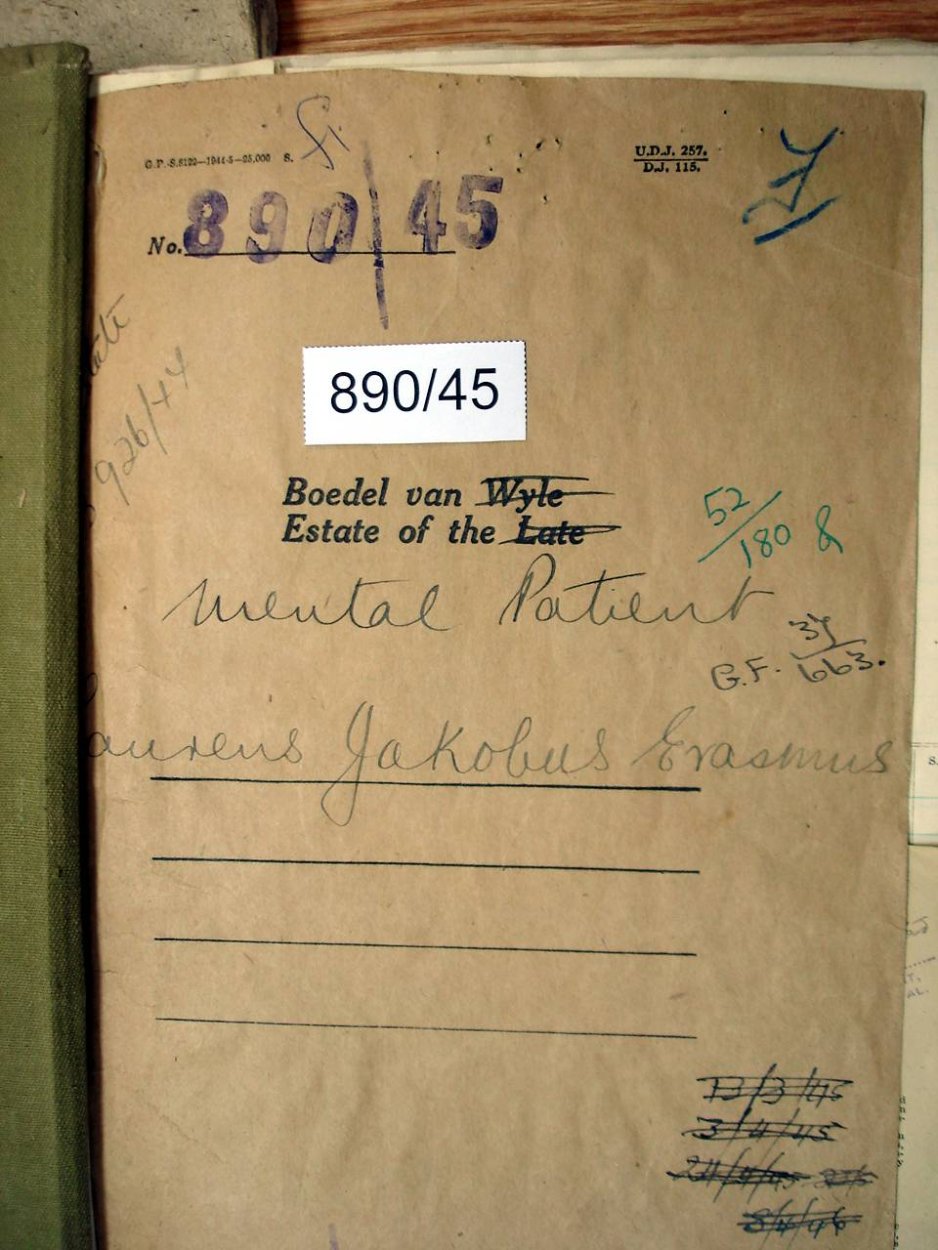 G.P.-S.8122—1944-5—25,000 S.
U.D.J. 257.
D.J. 115.
No. 890/45
926/44
890/45
Boedel van Wyle
Estate of the Late
52/180 &
Mental Patient
G.F. 37/663.
Laurens Jakobus Erasmus
13/3/45
3/4/45
24/4/45
8/4/46